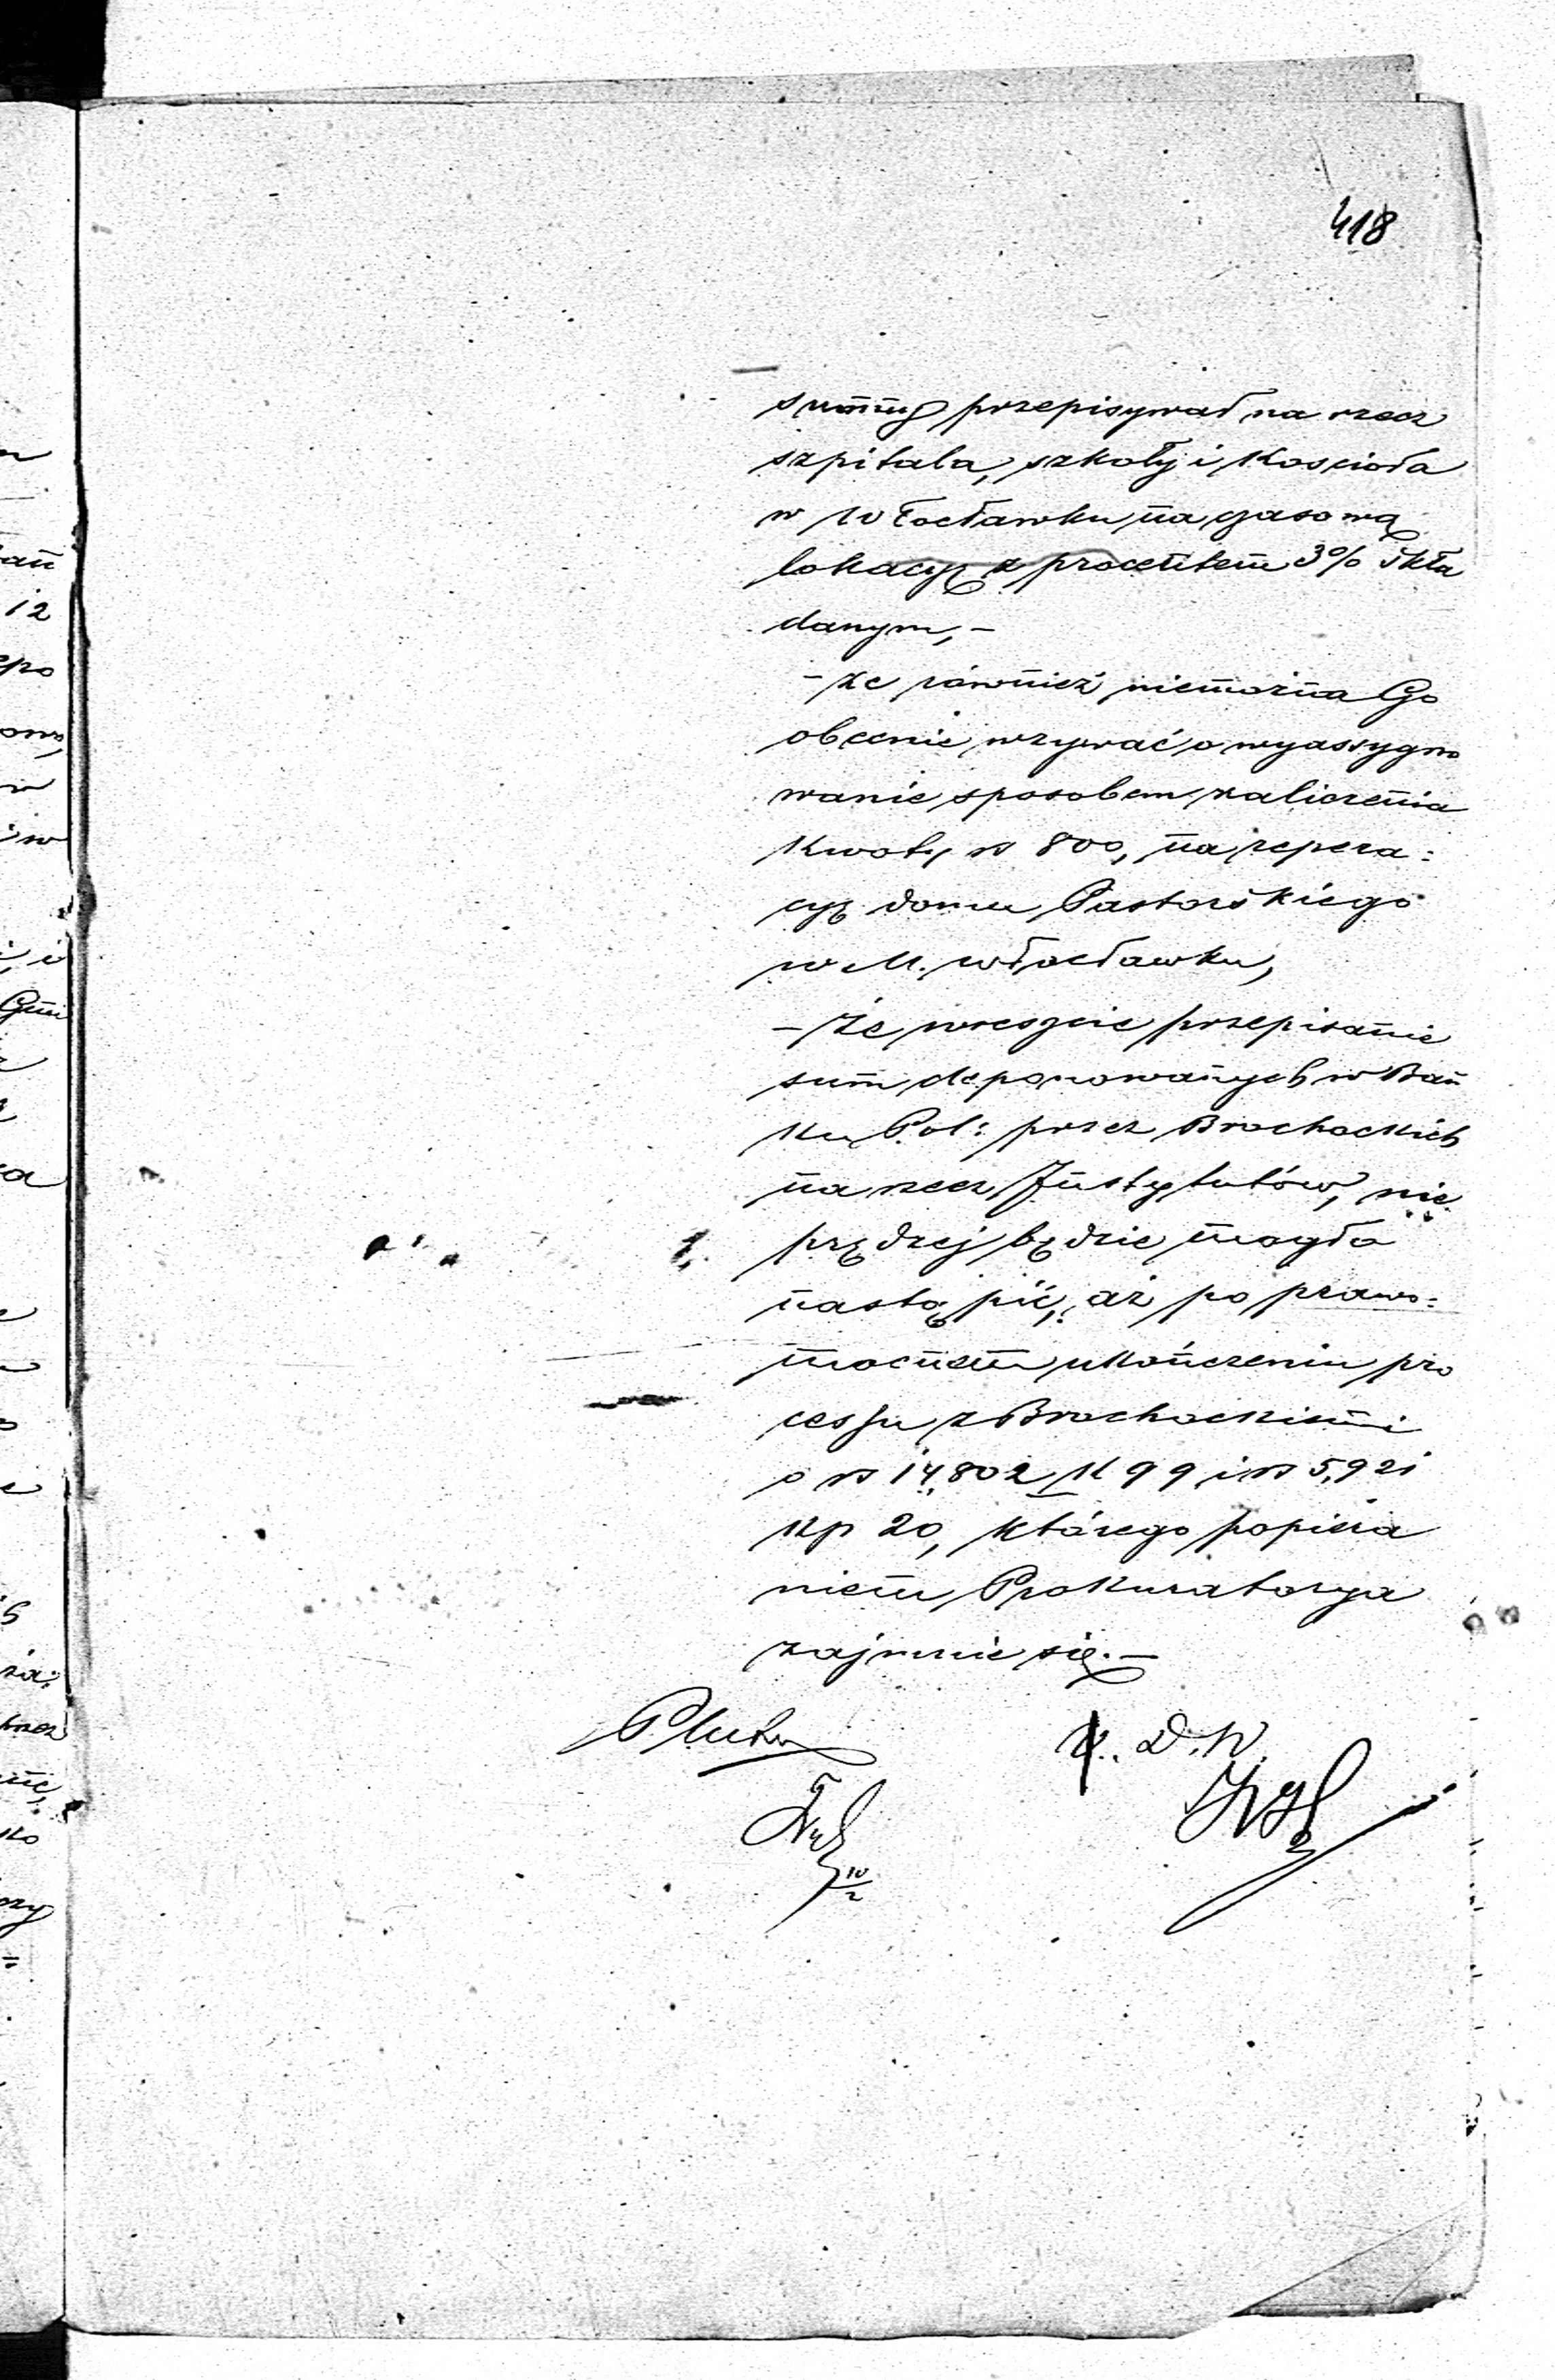 418
summy przepisywał na rzecz
szpitala, szkoły i Kościoła
w Włocławku na czasową
lokacyę z procentem 3% skła
danym, —
— że również niemożna Go
obecnie wzywać o wyassygno
wanie sposobem zaliczenia
kwoty rs 800, na repera:
cyę domu Pastorskiego
w M. Włocławku,
— że wreszcie przepisanie
sum deponowanych w Ban
ku Pol: przez Brochockich
na rzecz Instytutów, nie
prędzej będzie mogło
nastąpić, aż po prawo:
mocnem ukończeniu pro
cessu z Brochockiemi
o rs 14,802 k 99 i rs 5,921
kp 20, którego popiera
niem Prokuratorya
zajmie się. —
D. W.
10/2